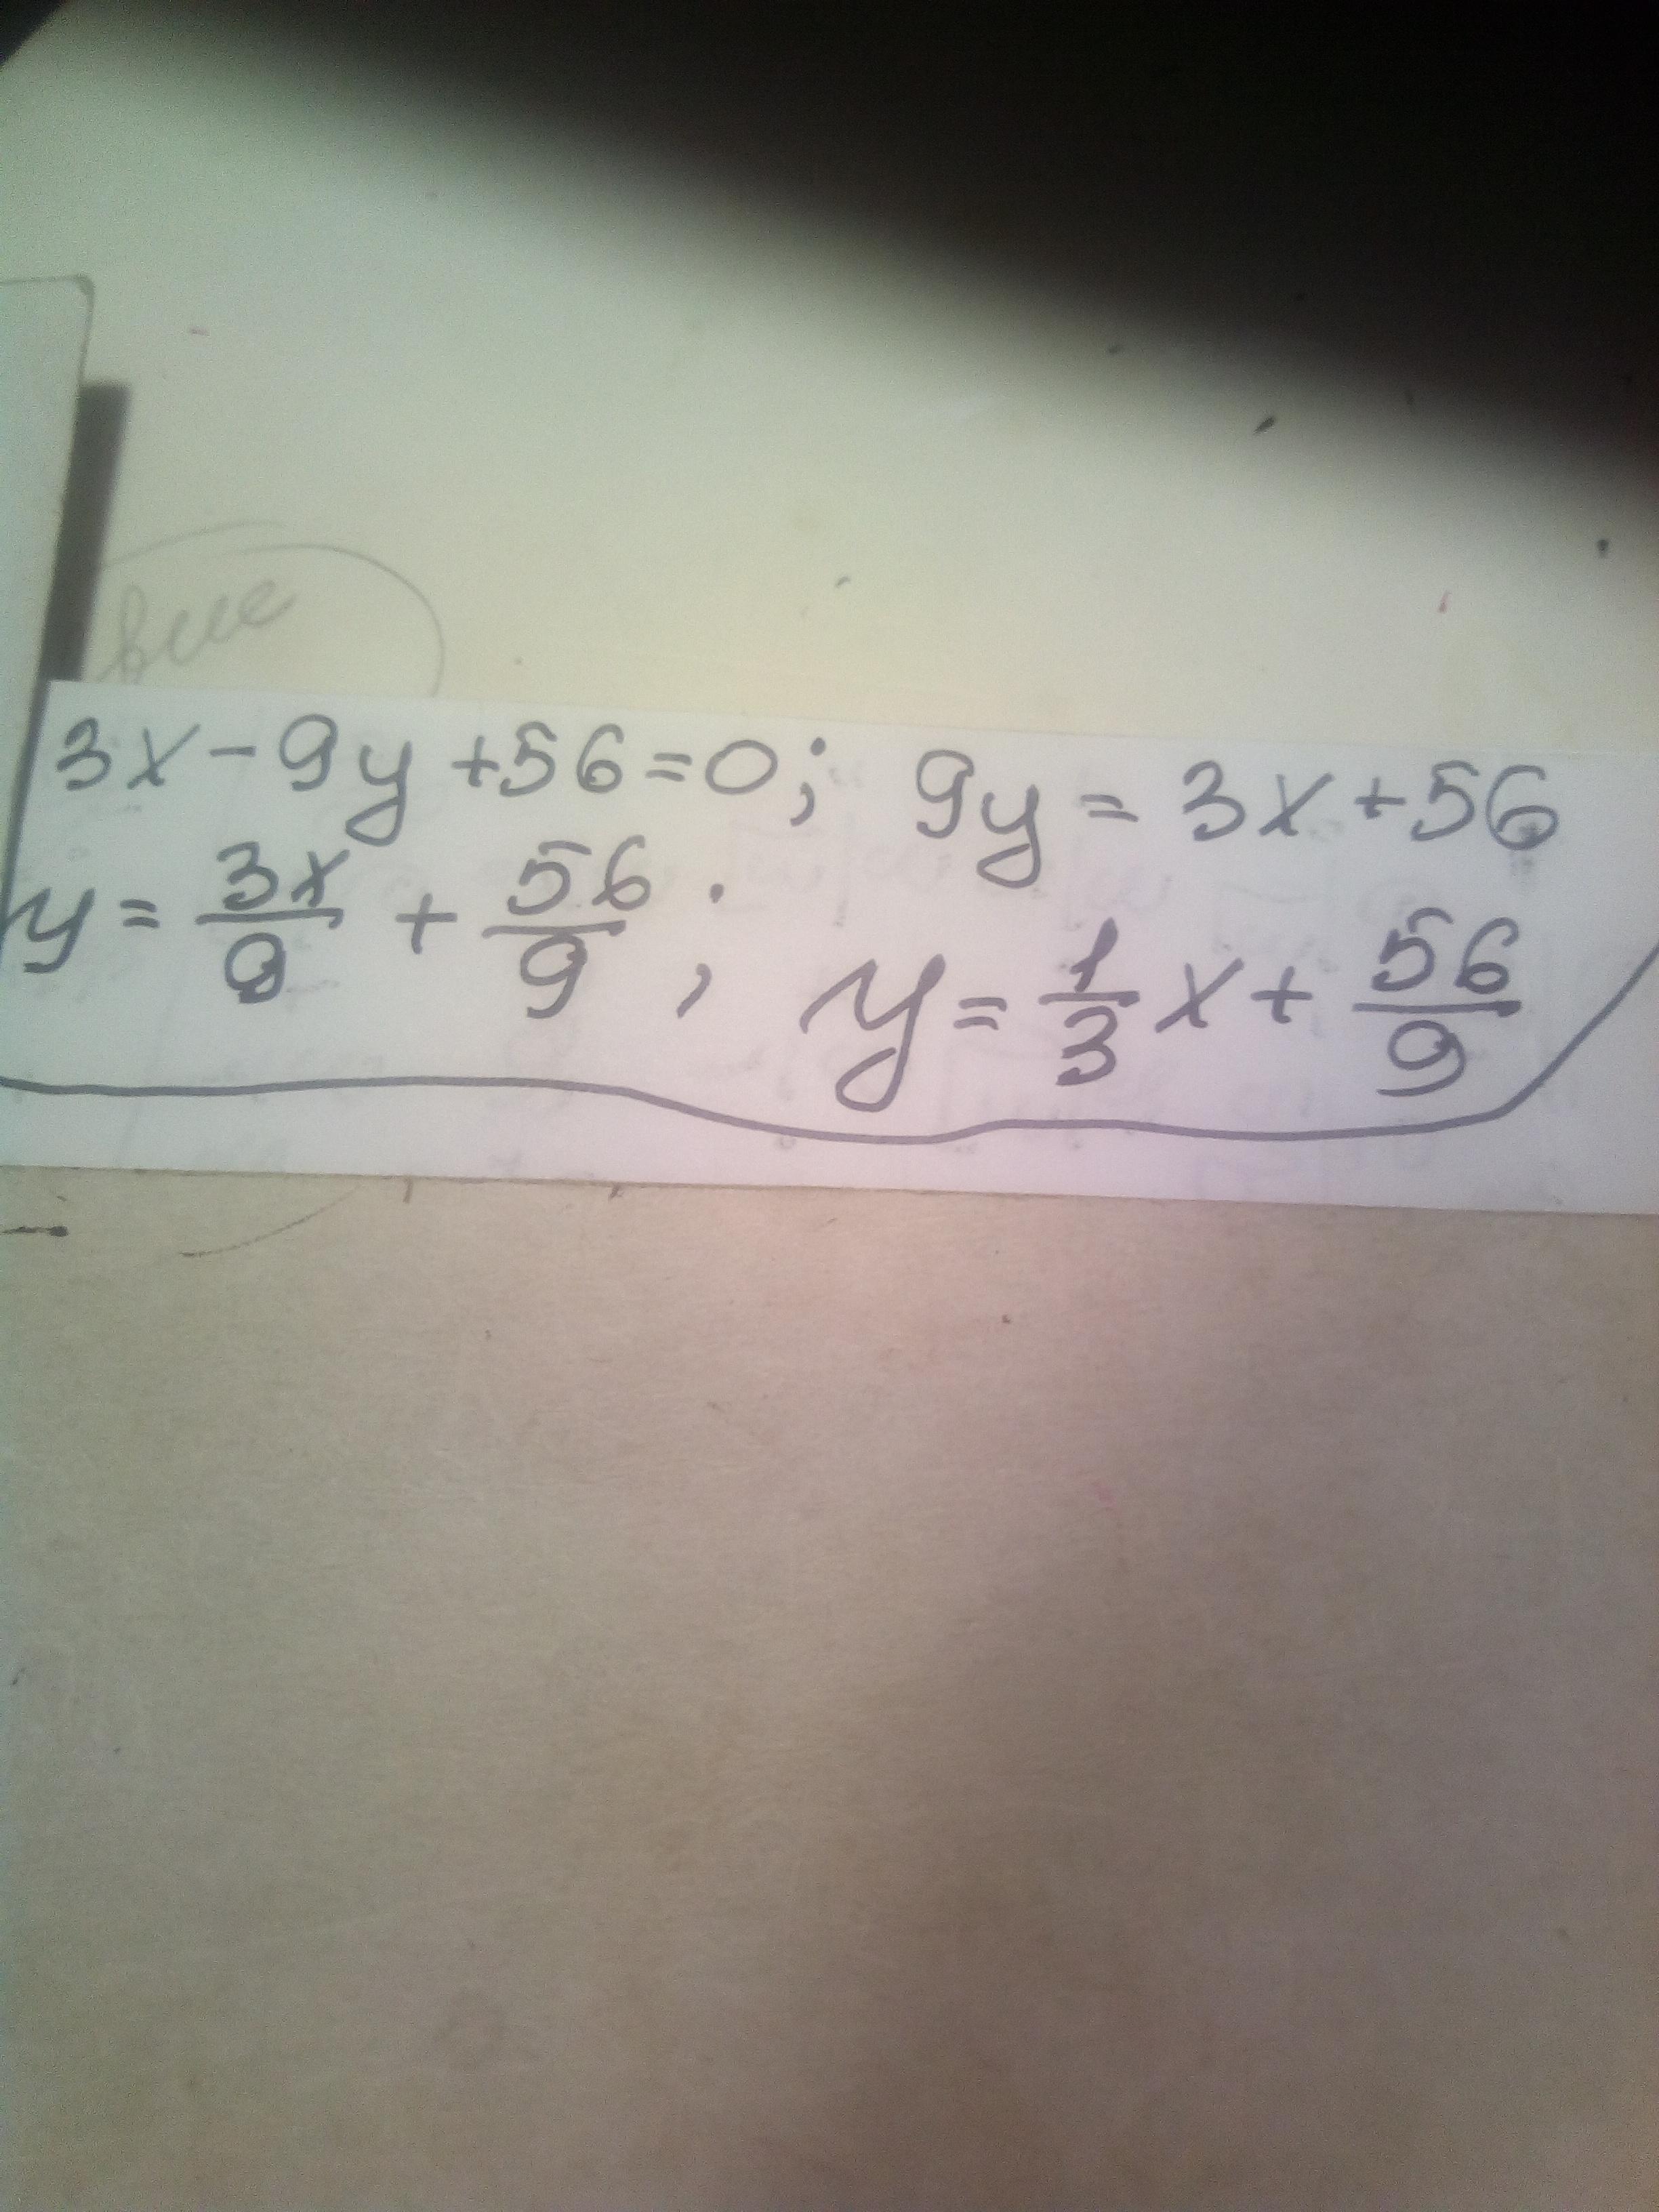 все
3x-9y+56=0; 9y=3x+56
y=3x/9+56/9; y=1/3x+56/9